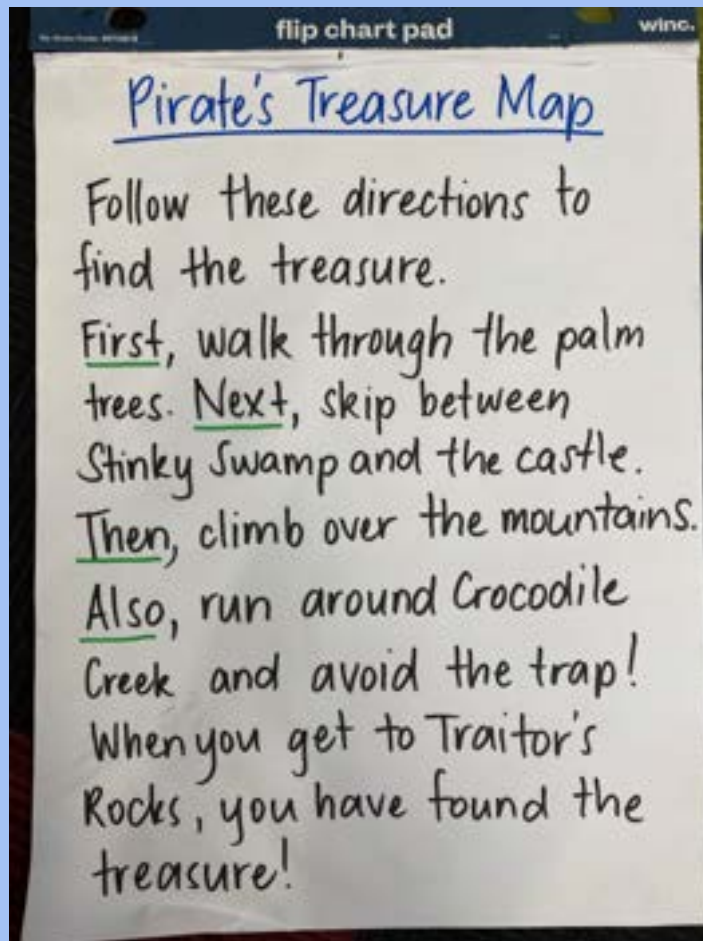 flip chart pad
winc.
Pirate's Treasure Map
Follow these directions to
find the treasure.
First, walk through the palm
trees. Next, skip between
Stinky Swamp and the castle.
Then, climb over the mountains.
Also, run around Crocodile
Creek and avoid the trap!
When you get to Traitor's
Rocks, you have found the
treasure!